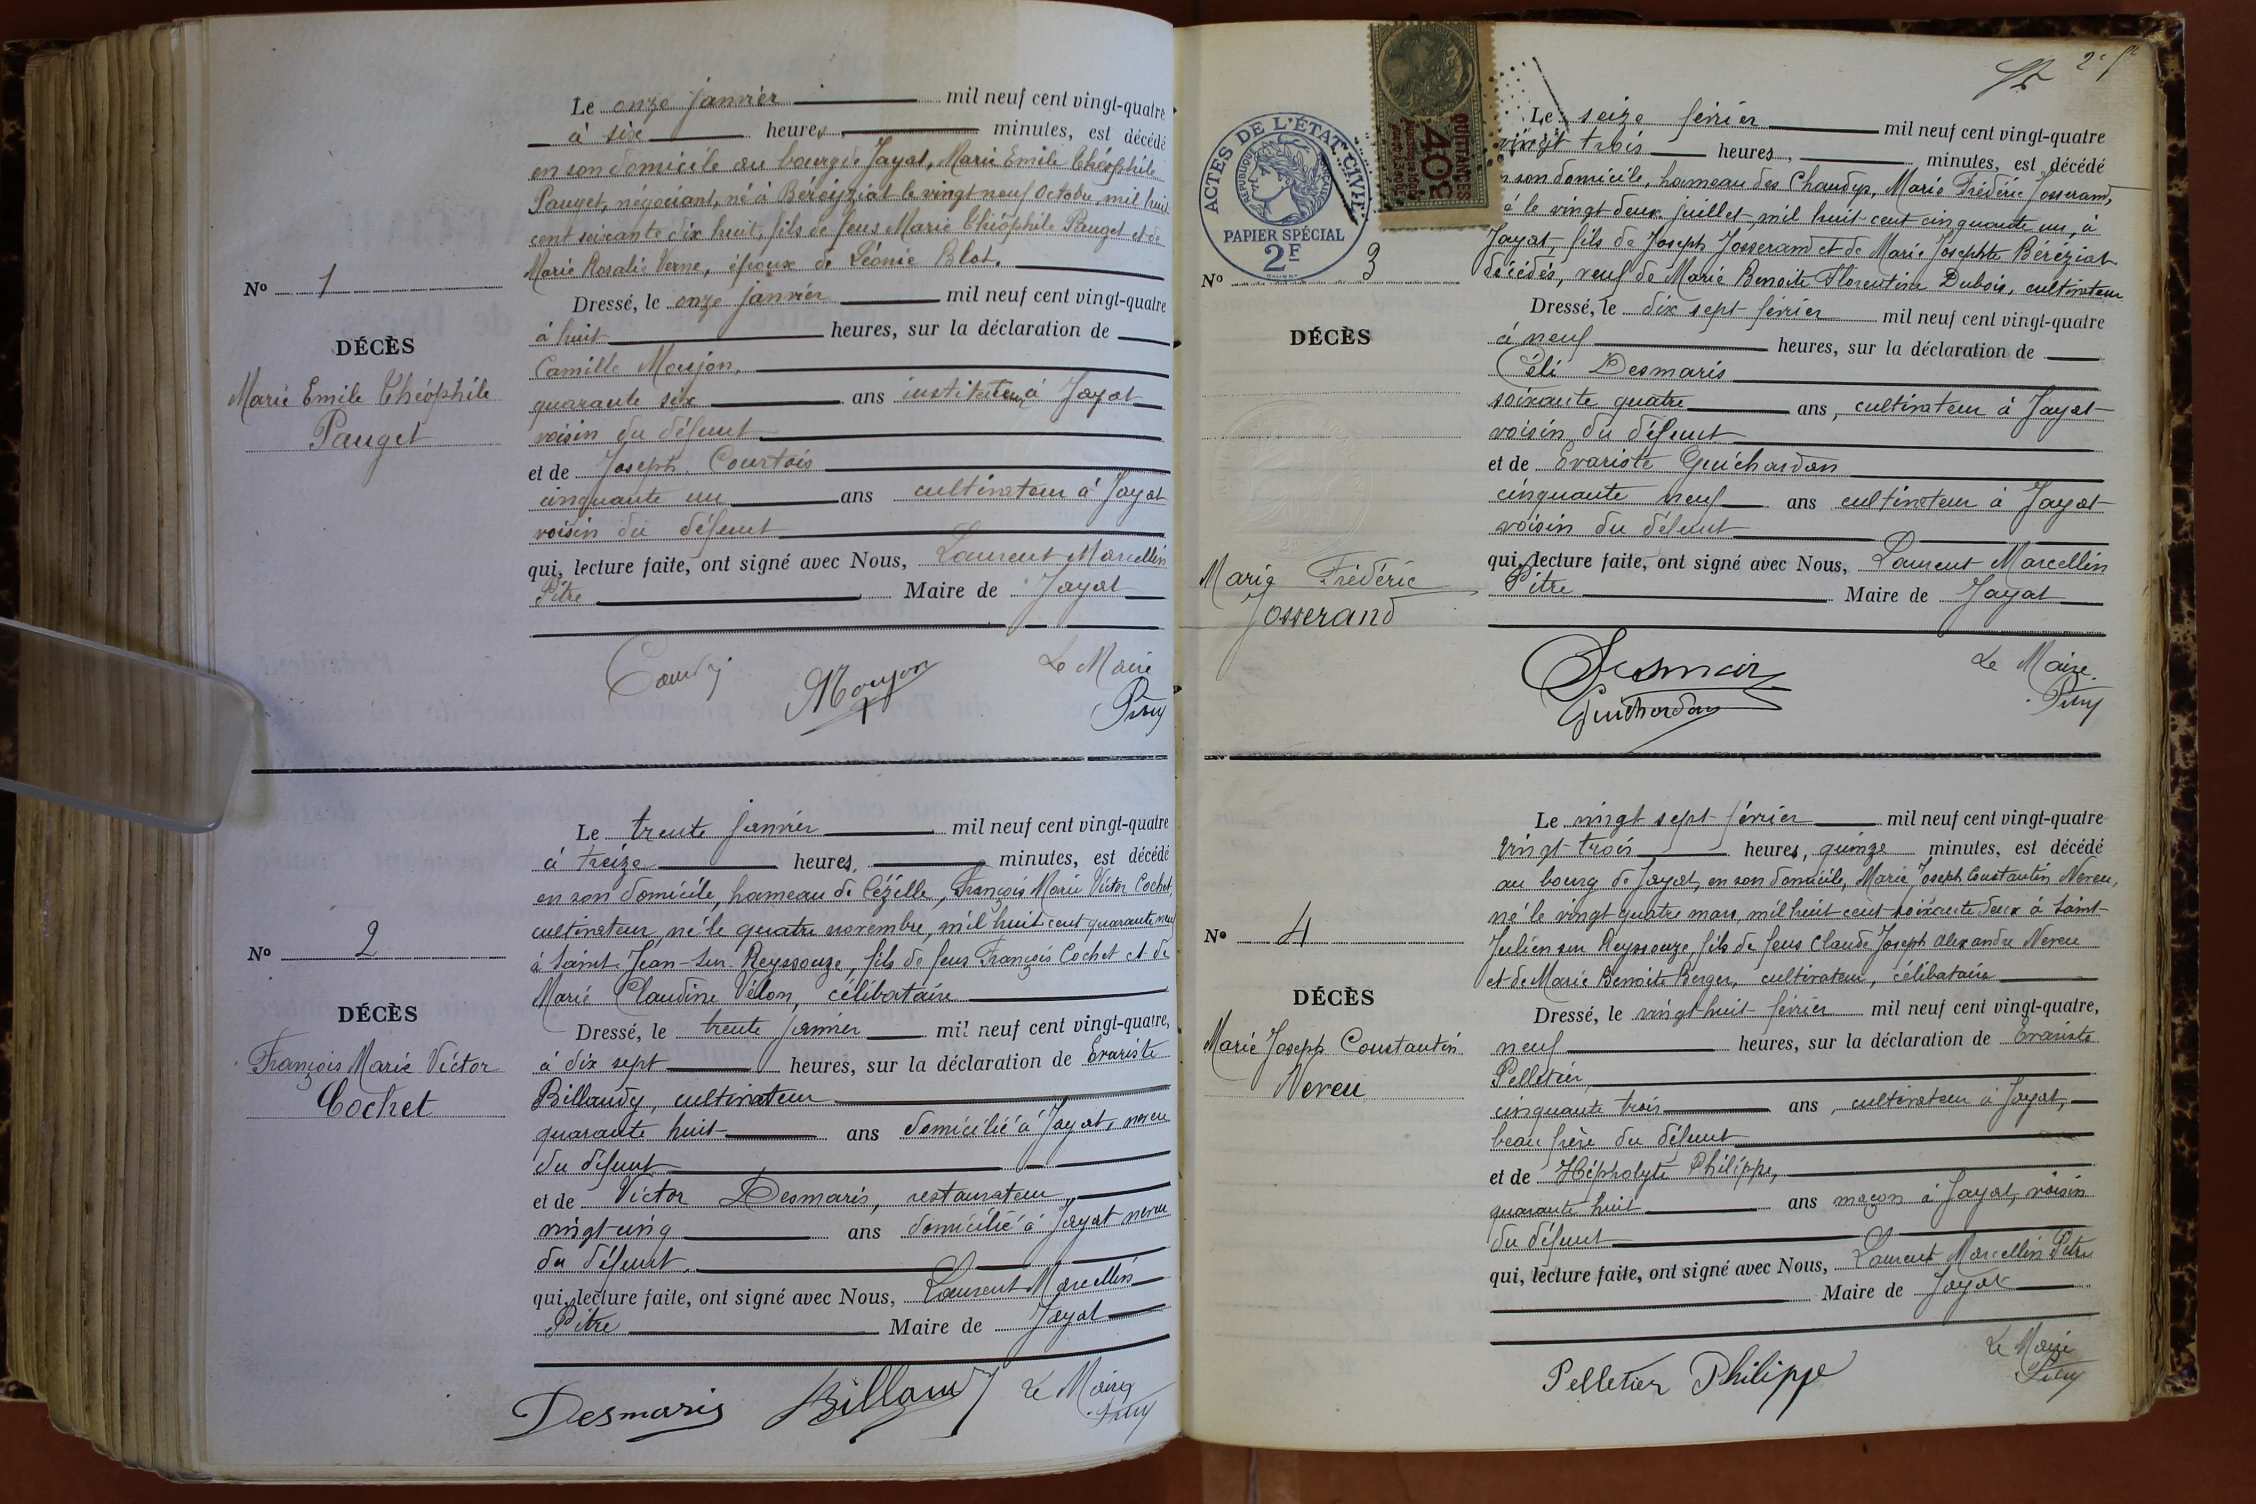 Le onze janvier mil neuf cent vingt-quatre
à six heures, minutes, est décédé
en son domicile au bourg de Jayat, Marie Emile Théophile
Pauget, négociant, né à Béréyziat le vingt neuf Octobre mil huit
cent soixante dix huit, fils de feus Marie Théophile Pauget et de
Marie Rosalie Verne, époux de Léonie Blot.
Nº 1
Dressé, le onze janvier mil neuf cent vingt-quatre
à huit heures, sur la déclaration de
DÉCÈS
Camille Moujon,
Marie Emile Théophile
Pauget
quarante six ans instituteur à Jayat
voisin du défunt
et de Joseph Courtois
cinquante un ans cultivateur à Jayat
voisin du défunt
qui, lecture faite, ont signé avec Nous, Laurent Marcellin
Pitre Maire de Jayat
Moujon
Le Maire
Le trente janvier mil neuf cent vingt-quatre
à treize heures, minutes, est décédé
en son domicile, hameau de Cézille, François Marie Victor Cochet,
cultivateur, né le quatre novembre, mil huit cent quarante neuf
à Saint-Jean-sur-Reyssouze, fils de feus François Cochet et de
Marie Claudine Vélon, célibataire
Nº 2
DÉCÈS
François Marie Victor
Cochet
Dressé, le trente janvier mil neuf cent vingt-quatre,
à dix sept heures, sur la déclaration de Evariste
Billaudy, cultivateur
quarante huit ans domicilié à Jayat, neveu
du défunt
et de Victor Desmaris, restaurateur
vingt cinq ans domicilié à Jayat neveu
du défunt.
qui, lecture faite, ont signé avec Nous, Laurent Marcellin
Pitre Maire de Jayat
Desmaris Billaudy Le Maire
ACTES DE L'ÉTAT CIVIL
RÉPUBLIQUE FRANÇAISE
PAPIER SPÉCIAL
2F
QUITTANCES
40c
Le seize février mil neuf cent vingt-quatre
vingt trois heures, minutes, est décédé
en son domicile, hameau des Chaudys, Marie Frédéric Josserand,
né le vingt deux juillet mil huit cent cinquante un, à
Jayat, fils de Joseph Josserand et de Marie Josephte Béréziat
décédés, veuf de Marie Benoite Florentine Dubois, cultivateur
Nº 3
DÉCÈS
Marie Frédéric
Josserand
Dressé, le dix sept février mil neuf cent vingt-quatre
à neuf heures, sur la déclaration de
Céli Desmaris
soixante quatre ans, cultivateur à Jayat
voisin du défunt
et de Evariste Guichardan
cinquante neuf ans cultivateur à Jayat
voisin du défunt
qui, lecture faite, ont signé avec Nous, Laurent Marcellin
Pitre Maire de Jayat
Le Maire.
Guichardan
Le vingt sept février mil neuf cent vingt-quatre
vingt-trois heures, quinze minutes, est décédé
au bourg de Jayat, en son domicile, Marie Joseph Constantin Neveu,
né le vingt quatre mars, mil huit cent soixante deux à Saint-
Julien sur Reyssouze, fils de feus Claude Joseph Alexandre Neveu
et de Marie Benoite Berger, cultivateur, célibataire
Nº 4
DÉCÈS
Marie Joseph Constantin
Neveu
Dressé, le vingt-huit février mil neuf cent vingt-quatre,
neuf heures, sur la déclaration de Evariste
Pelletier,
cinquante trois ans, cultivateur à Jayat,
beau frère du défunt
et de Hippolyte Philippe,
quarante huit ans maçon à Jayat, voisin
du défunt
qui, lecture faite, ont signé avec Nous, Laurent Marcellin Pitre
Maire de Jayat
Pelletier Philippe
Le Maire